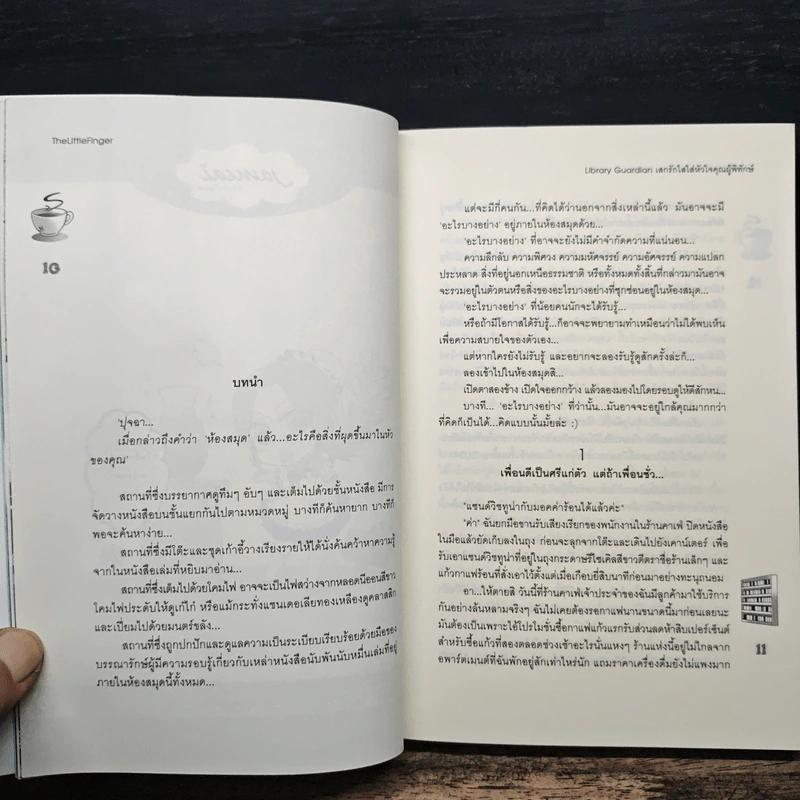 TheLittleFinger
jamsai
10
บทนำ
'ปุจฉา...
เมื่อกล่าวถึงคำว่า 'ห้องสมุด' แล้ว...อะไรคือสิ่งที่ผุดขึ้นมาในหัว
ของคุณ'
สถานที่ซึ่งบรรยากาศดูทึมๆ อับๆ และเต็มไปด้วยชั้นหนังสือ มีการ
จัดวางหนังสือบนชั้นแยกกันไปตามหมวดหมู่ บางทีก็ค้นหายาก บางทีก็
พอจะค้นหาง่าย...
สถานที่ซึ่งมีโต๊ะและชุดเก้าอี้วางเรียงรายให้ได้นั่งค้นคว้าหาความรู้
จากในหนังสือเล่มที่หยิบมาอ่าน...
สถานที่ซึ่งเต็มไปด้วยโคมไฟ อาจจะเป็นไฟสว่างจากหลอดนีออนสีขาว
โคมไฟประดับให้ดูเก๋ไก๋ หรือแม้กระทั่งแชนเดอเลียทองเหลืองดูคลาสสิก
และเปี่ยมไปด้วยมนตร์ขลัง...
สถานที่ซึ่งถูกปกปักและดูแลความเป็นระเบียบเรียบร้อยด้วยมือของ
บรรณารักษ์ผู้มีความรอบรู้เกี่ยวกับเหล่าหนังสือนับพันนับหมื่นเล่มที่อยู่
ภายในห้องสมุดนี้ทั้งหมด...
Library Guardian เสกรักใสใส่หัวใจคุณผู้พิทักษ์
แต่จะมีกี่คนกัน...ที่คิดได้ว่านอกจากสิ่งเหล่านี้แล้ว มันอาจจะมี
'อะไรบางอย่าง' อยู่ภายในห้องสมุดด้วย...
'อะไรบางอย่าง' ที่อาจจะยังไม่มีคำจำกัดความที่แน่นอน...
ความลึกลับ ความพิศวง ความมหัศจรรย์ ความอัศจรรย์ ความแปลก
ประหลาด สิ่งที่อยู่นอกเหนือธรรมชาติ หรือทั้งหมดทั้งสิ้นที่กล่าวมามันอาจ
จะรวมอยู่ในตัวตนหรือสิ่งของอะไรบางอย่างที่ซุกซ่อนอยู่ในห้องสมุด...
'อะไรบางอย่าง' ที่น้อยคนนักจะได้รับรู้...
หรือถ้ามีโอกาสได้รับรู้...ก็อาจจะพยายามทำเหมือนว่าไม่ได้พบเห็น
เพื่อความสบายใจของตัวเอง...
แต่หากใครยังไม่รับรู้ และอยากจะลองรับรู้ดูสักครั้งล่ะก็...
ลองเข้าไปในห้องสมุดสิ...
เปิดตาสองข้าง เปิดใจออกกว้าง แล้วลองมองไปโดยรอบดูให้ดีสักหน...
บางที... 'อะไรบางอย่าง' ที่ว่านั้น...มันอาจจะอยู่ใกล้คุณมากกว่า
ที่คิดก็เป็นได้...คิดแบบนั้นมั้ยล่ะ :)
1
เพื่อนดีเป็นศรีแก่ตัว แต่ถ้าเพื่อนชั่ว...
"แซนด์วิชทูน่ากับมอคค่าร้อนได้แล้วค่ะ"
"ค่า" ฉันยกมือขานรับเสียงเรียกของพนักงานในร้านคาเฟ่ ปิดหนังสือ
ในมือแล้วยัดเก็บลงในถุง ก่อนจะลุกจากโต๊ะและเดินไปยังเคาน์เตอร์ เพื่อ
รับเอาแซนด์วิชทูน่าที่อยู่ในถุงกระดาษรีไซเคิลสีขาวตีตราชื่อร้านเล็กๆ และ
แก้วกาแฟร้อนที่สั่งเอาไว้ตั้งแต่เมื่อเกือบยี่สิบนาทีก่อนมาอย่างทะนุถนอม
อา...ให้ตายสิ วันนี้ที่ร้านคาเฟ่เจ้าประจำของฉันมีลูกค้ามาใช้บริการ
กันอย่างล้นหลามจริงๆ ฉันไม่เคยต้องรอกาแฟนานขนาดนี้มาก่อนเลยนะ
มันต้องเป็นเพราะไอ้โปรโมชั่นซื้อกาแฟแวกแรกรับส่วนลดห้าสิบเปอร์เซ็นต์
สำหรับซื้อแก้วที่สองตลอดช่วงเช้าอะไรนั่นแหงๆ ร้านแห่งนี้อยู่ไม่ไกลจาก
อพาร์ตเมนต์ที่ฉันพักอยู่สักเท่าไหร่นัก แถมราคาเครื่องดื่มยังไม่แพงมาก
11